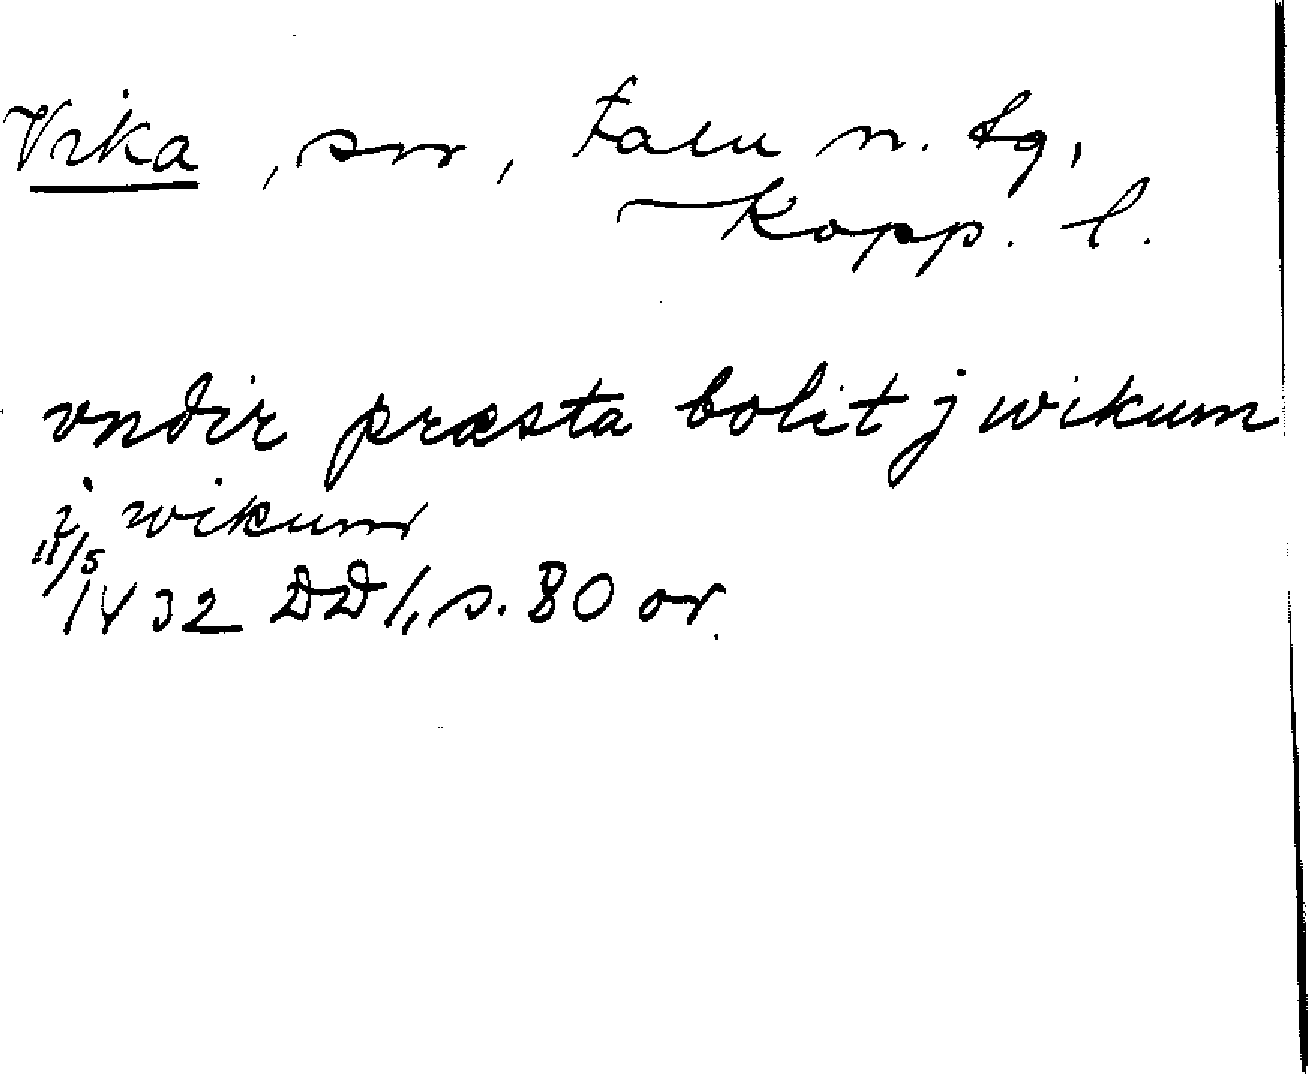 Vika, sn, Falu n. tg,
Kopp. l.
vndir præsta bolit j wikum
j wikum
11/5
1432 DD 1, s. 80 or.